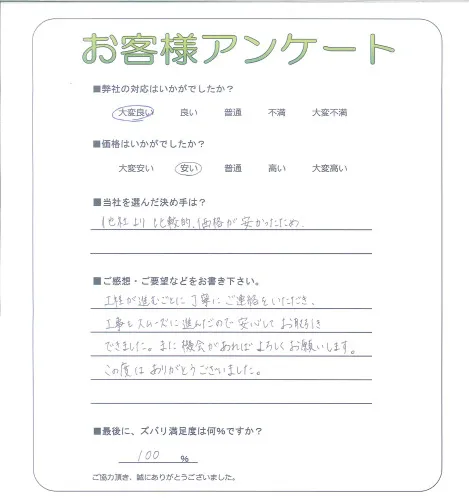 お客様アンケート
■弊社の対応はいかがでしたか？
大変良い 良い 普通 不満 大変不満
■価格はいかがでしたか？
大変安い 安い 普通 高い 大変高い
■当社を選んだ決め手は？
他社より比較的、価格が安かったため.
■ご感想・ご要望などをお書き下さい。
工程が進むごとに丁寧にご連絡をいただき、
工事もスムーズに進んだので安心してお取引き
できました。また機会があればよろしくお願いします。
この度はありがとうございました。
■最後に、ズバリ満足度は何%ですか？
100 %
ご協力頂き、誠にありがとうございました。